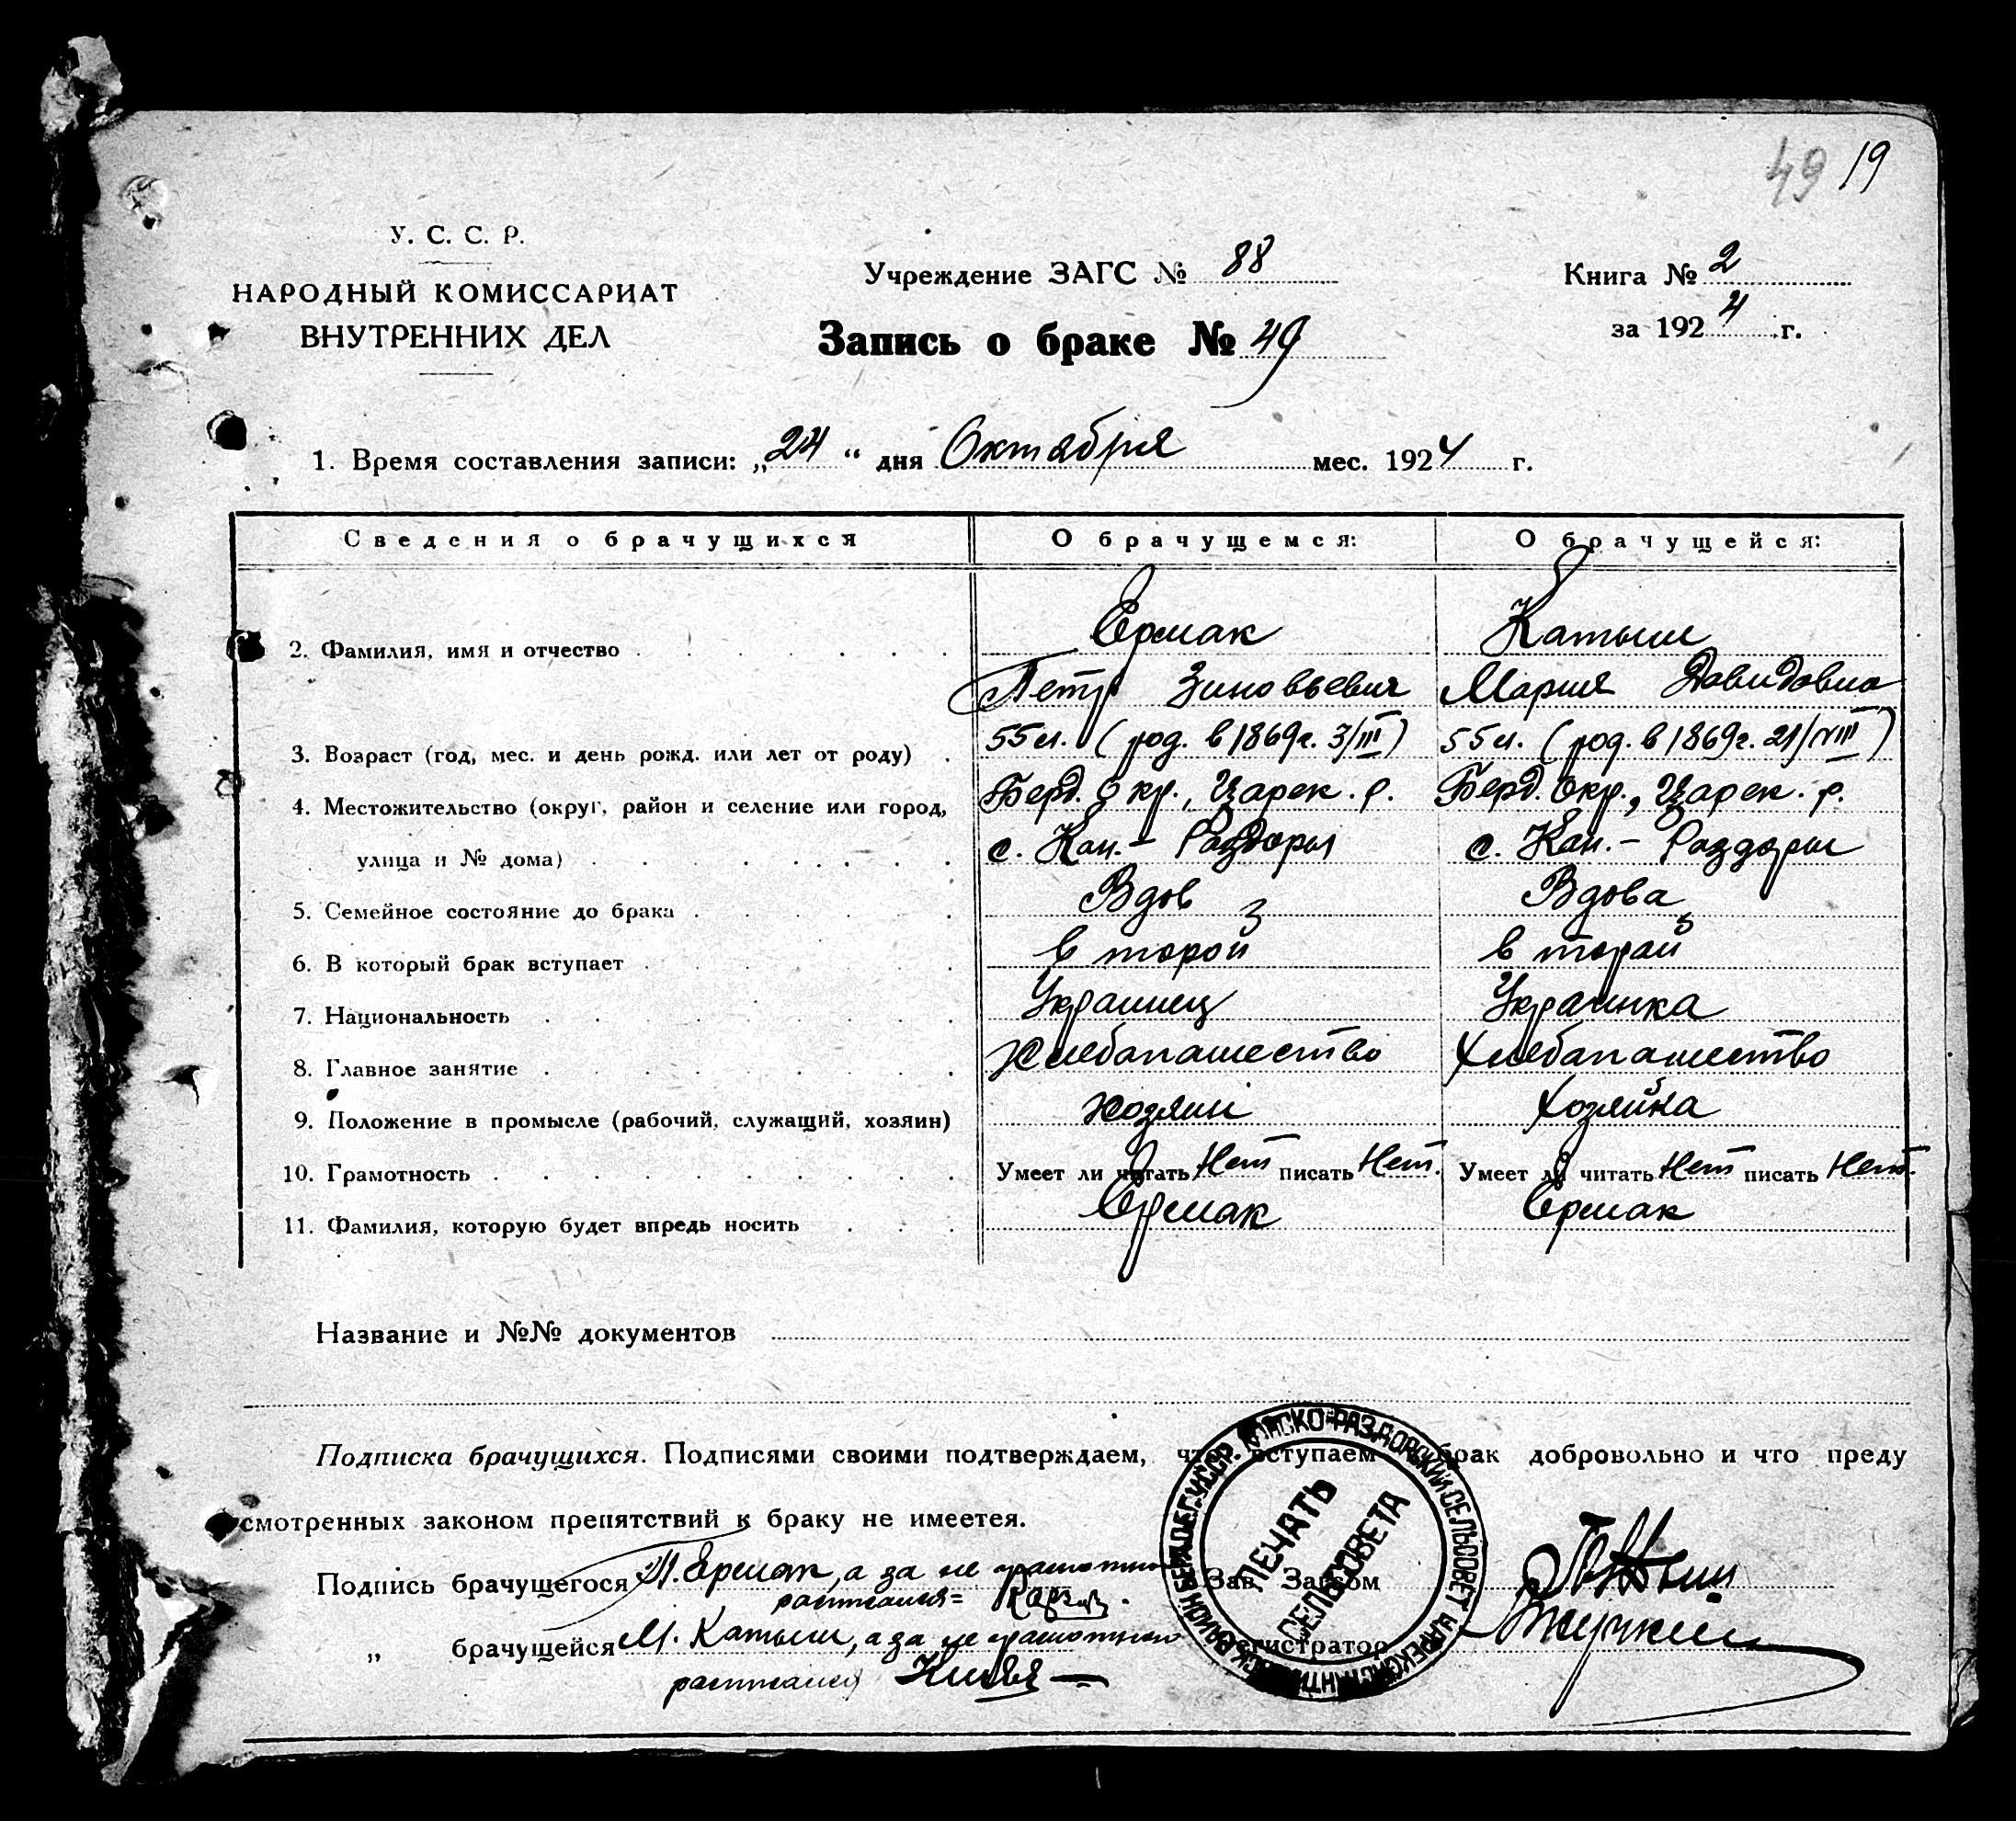 49 19
У. С. С. Р.
НАРОДНЫЙ КОМИССАРИАТ
ВНУТРЕННИХ ДЕЛ
Учреждение ЗАГС № 88
Запись о браке № 49
Книга № 2
за 1924 г.
1. Время составления записи: „24“ дня Октября мес. 1924 г.
Сведения о брачущихся О брачущемся: О брачущейся:
Ермак Катыш
2. Фамилия, имя и отчество
Петр Зиновьевич Мария Давидовна
3. Возраст (год, мес. и день рожд. или лет от роду) 55 л. (род. в 1869 г. 3/III) 55 л. (род. в 1869 г. 21/VIII)
4. Местожительство (округ, район и селение или город, Берд. Окр., Царек. р. Берд. Окр., Царек. р.
улица и № дома) с. Кон.-Раздоры с. Кон.-Раздоры
5. Семейное состояние до брака Вдов Вдова
6. В который брак вступает второй второй
7. Национальность Украинец Украинка
8. Главное занятие Хлебапашество Хлебапашество
9. Положение в промысле (рабочий, служащий, хозяин) хозяин Хозяйка
10. Грамотность Умеет ли читать Нет писать Нет. Умеет ли читать Нет писать Нет.
11. Фамилия, которую будет впредь носить Ермак Ермак
Название и №№ документов
Подписка брачущихся. Подписями своими подтверждаем, что вступаем брак добровольно и что преду
смотренных законом препятствий к браку не имеется.
Подпись брачущегося П. Ермак, а за не грамотного
расписался=
Зав. Загсом
„ брачущейся М. Катыш, а за не грамотную
расписался
Регистратор
КОНСКО-РАЗДОРСКИЙ СЕЛЬСОВЕТ
ПЕЧАТЬ
СЕЛЬСОВЕТА